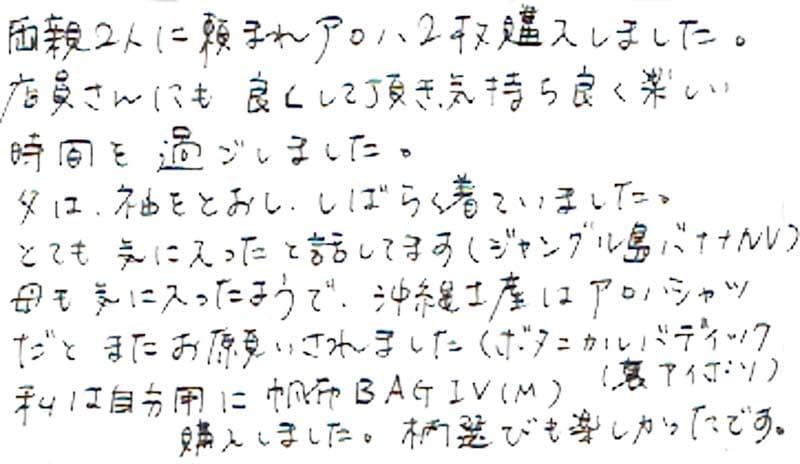 両親2人に頼まれアロハ2枚購入しました。
店員さんにも良くして頂き気持ち良く楽しい
時間を過ごしました。
父は、袖をとおし、しばらく着ていました。
とても気に入ったと話してます(ジャングル島バナナNV)
母も気に入ったようで、沖縄土産はアロハシャツ
だとまたお願いされました(ボタニカルバティック
(裏アイボリ)
私は自分用に帆布BAG IV(M)
購入しました。柄選びも楽しかったです。